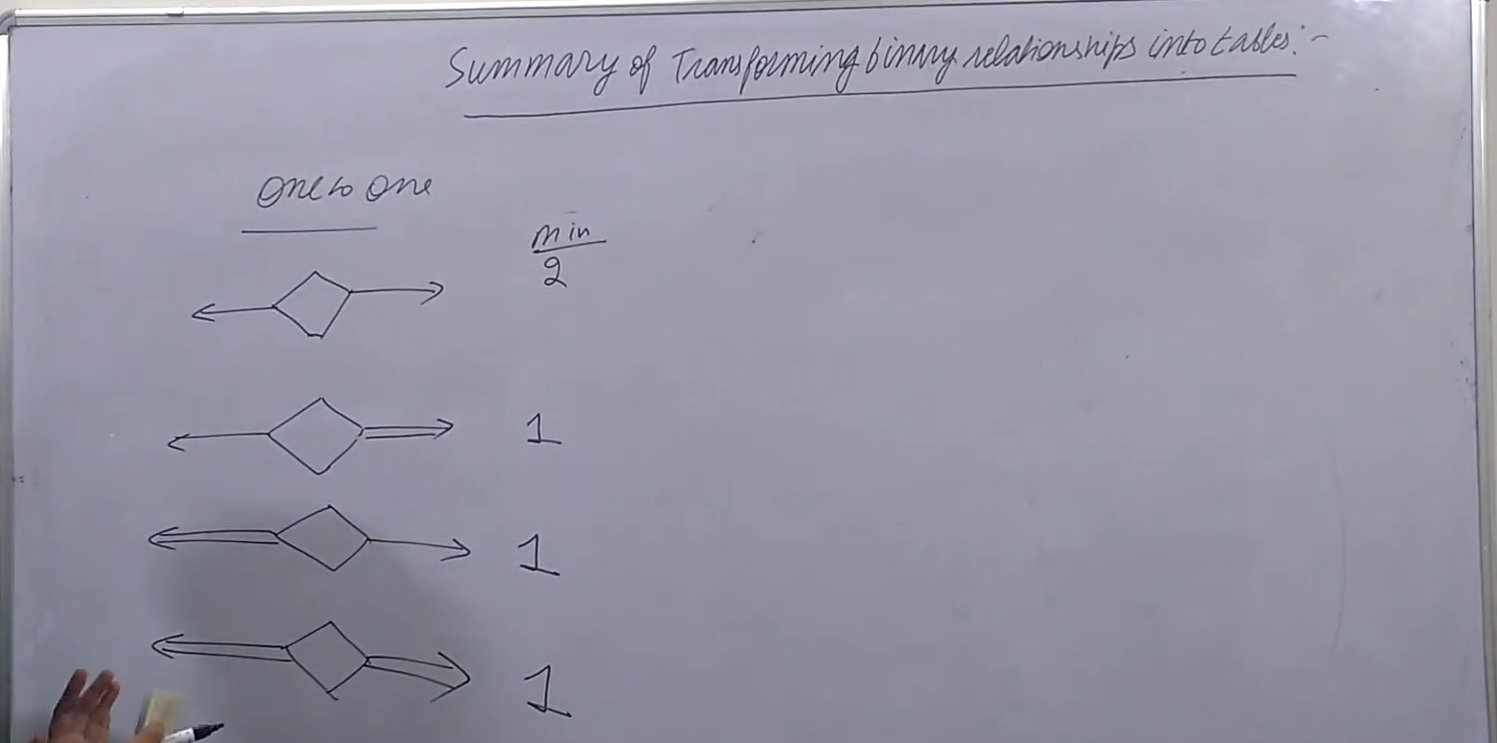 Summary of Transforming binary relationships into tables:-
one to one
min
2
1
1
1